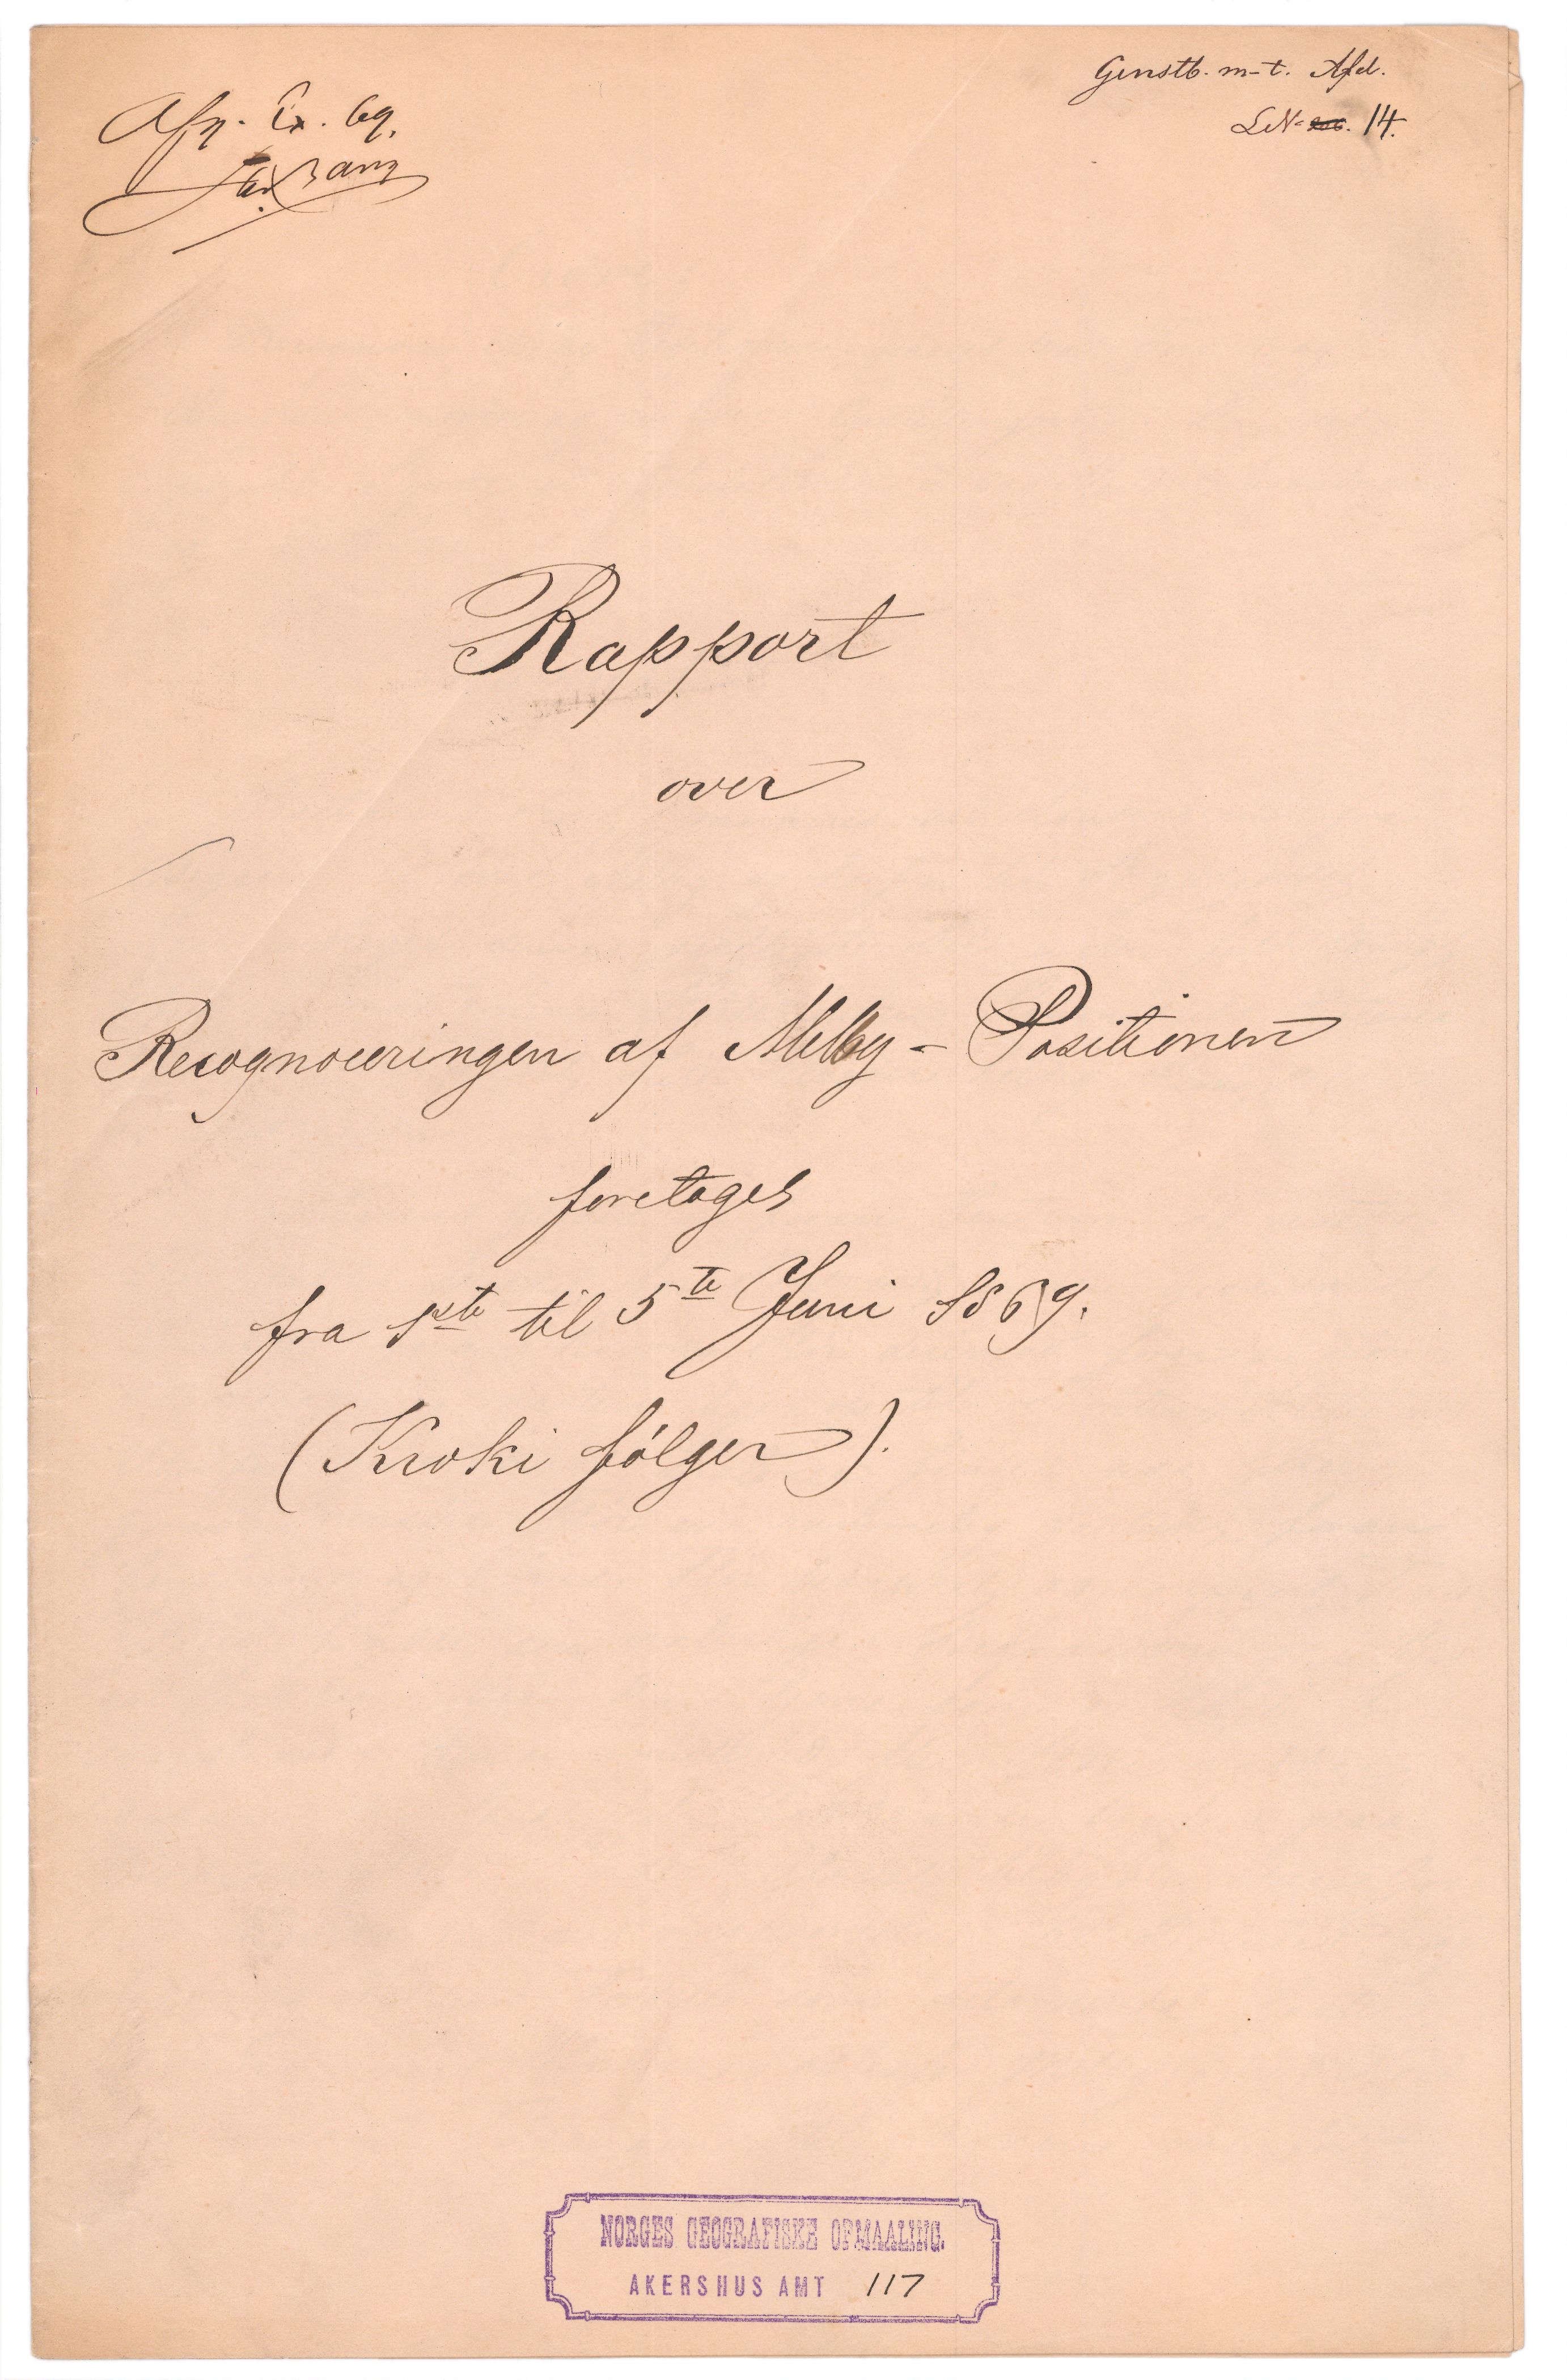 Genstb. m-t. Afd.
LN= 14.
Afg. Ex. 69.
Rapport
over
Recognoceringen af Melby - Positionen
foretaget
fra 1ste til 5te Juni 1869.
(Kroki følger).
NORGES GEOGRAFISKE OPMAALING.
AKERSHUS AMT 117